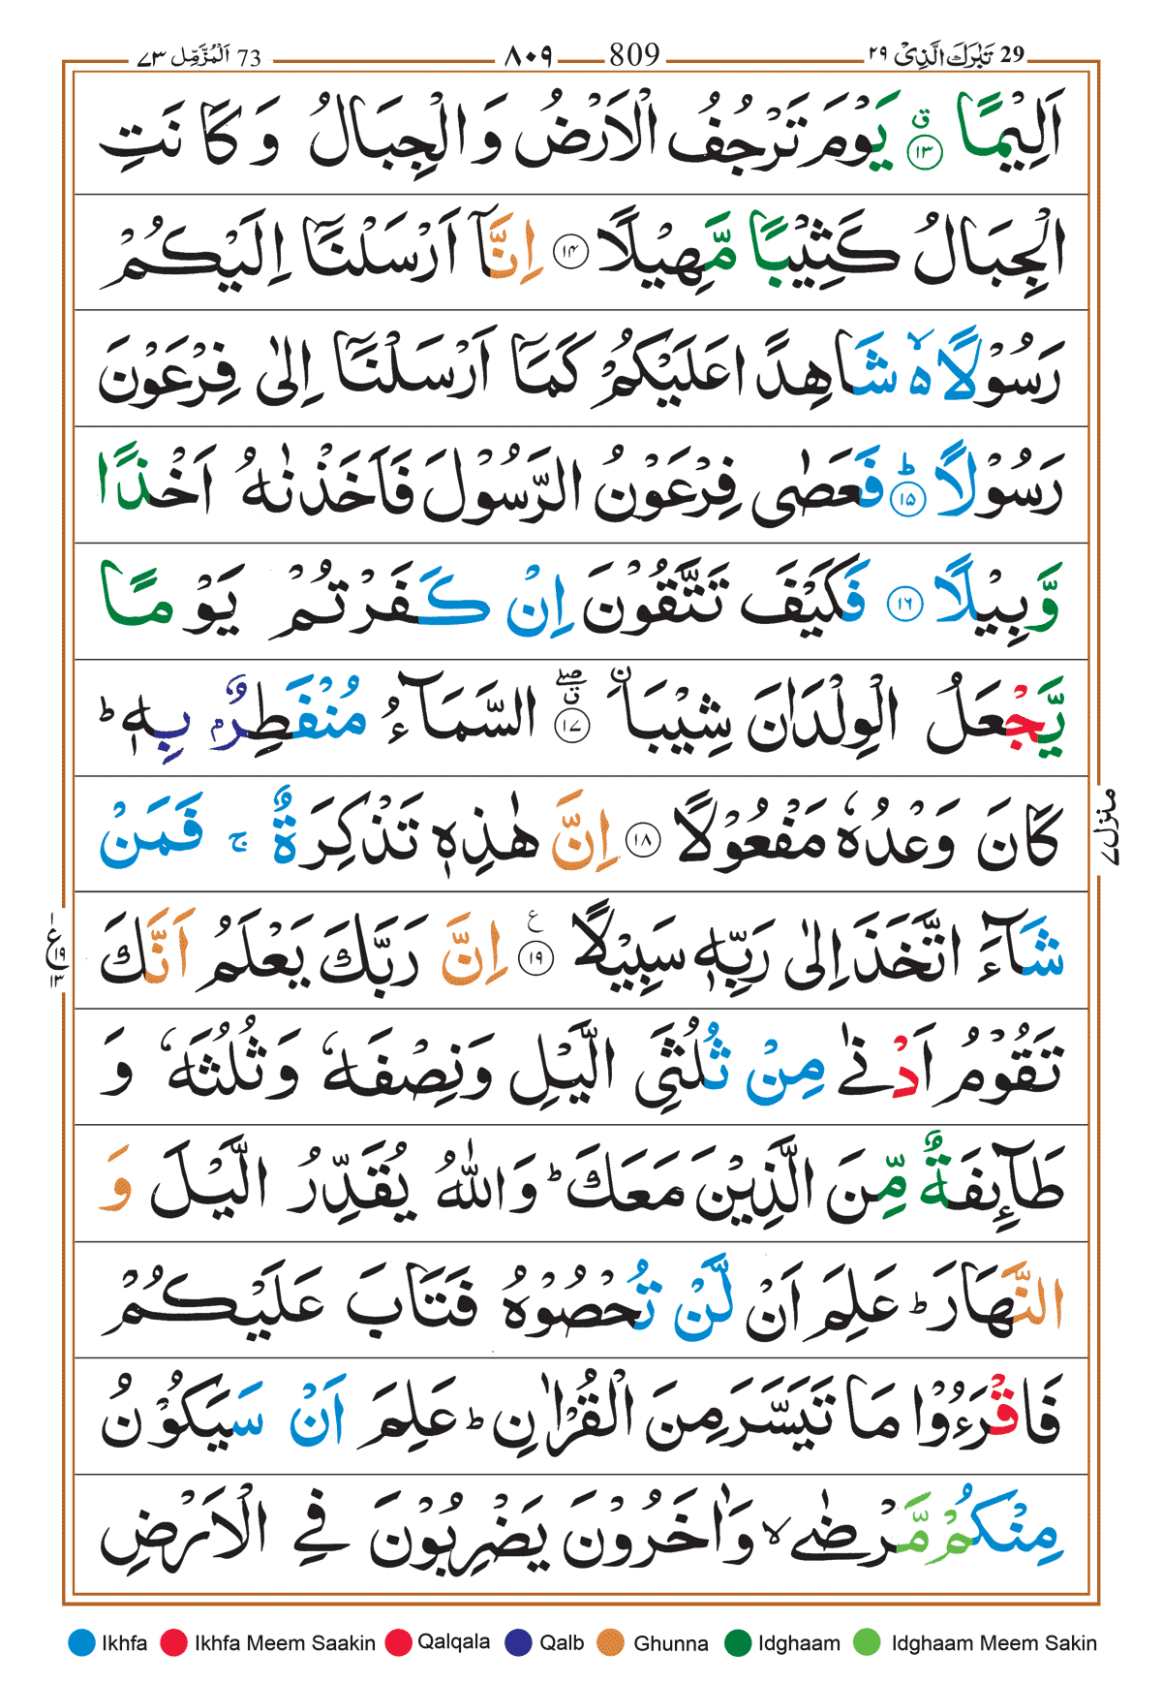 29 تَبٰرَكَ الَّذِىْ ٢٩ 809 ٨٠٩ 73 اَلْمُزَّمِّل ٧٣
اَلِيْمًا ۙ ق ١٣ يَوْمَ تَرْجُفُ الْاَرْضُ وَ الْجِبَالُ وَ كَانَتِ
الْجِبَالُ كَثِيْبًا مَّهِيْلًا ١٤ اِنَّاۤ اَرْسَلْنَاۤ اِلَيْكُمْ
رَسُوْلًا ۙ۬ شَاهِدًا عَلَيْكُمْ كَمَاۤ اَرْسَلْنَاۤ اِلٰى فِرْعَوْنَ
رَسُوْلًا ؕ ١٥ فَعَصٰى فِرْعَوْنُ الرَّسُوْلَ فَاَخَذْنٰهُ اَخْذًا
وَّبِيْلًا ١٦ فَكَيْفَ تَتَّقُوْنَ اِنْ كَفَرْتُمْ يَوْمًا
يَّجْعَلُ الْوِلْدَانَ شِيْبَاۨ ۖ ق ١٧ السَّمَآءُ مُنْفَطِرٌۢ بِهٖ ؕ
كَانَ وَعْدُهٗ مَفْعُوْلًا ١٨ اِنَّ هٰذِهٖ تَذْكِرَةٌ ۚ فَمَنْ
شَآءَ اتَّخَذَ اِلٰى رَبِّهٖ سَبِيْلًا ع ١٩ اِنَّ رَبَّكَ يَعْلَمُ اَنَّكَ
تَقُوْمُ اَدْنٰى مِنْ ثُلُثَىِ الَّيْلِ وَنِصْفَهٗ وَثُلُثَهٗ وَ
طَآئِفَةٌ مِّنَ الَّذِيْنَ مَعَكَ ؕ وَاللّٰهُ يُقَدِّرُ الَّيْلَ وَ
النَّهَارَ ؕ عَلِمَ اَنْ لَّنْ تُحْصُوْهُ فَتَابَ عَلَيْكُمْ
فَاقْرَءُوْا مَا تَيَسَّرَ مِنَ الْقُرْاٰنِ ؕ عَلِمَ اَنْ سَيَكُوْنُ
مِنْكُمْ مَّرْضٰى ۙ وَاٰخَرُوْنَ يَضْرِبُوْنَ فِى الْاَرْضِ
منزل ٧
ع ١٩ ١٣
Ikhfa Ikhfa Meem Saakin Qalqala Qalb Ghunna Idghaam Idghaam Meem Sakin